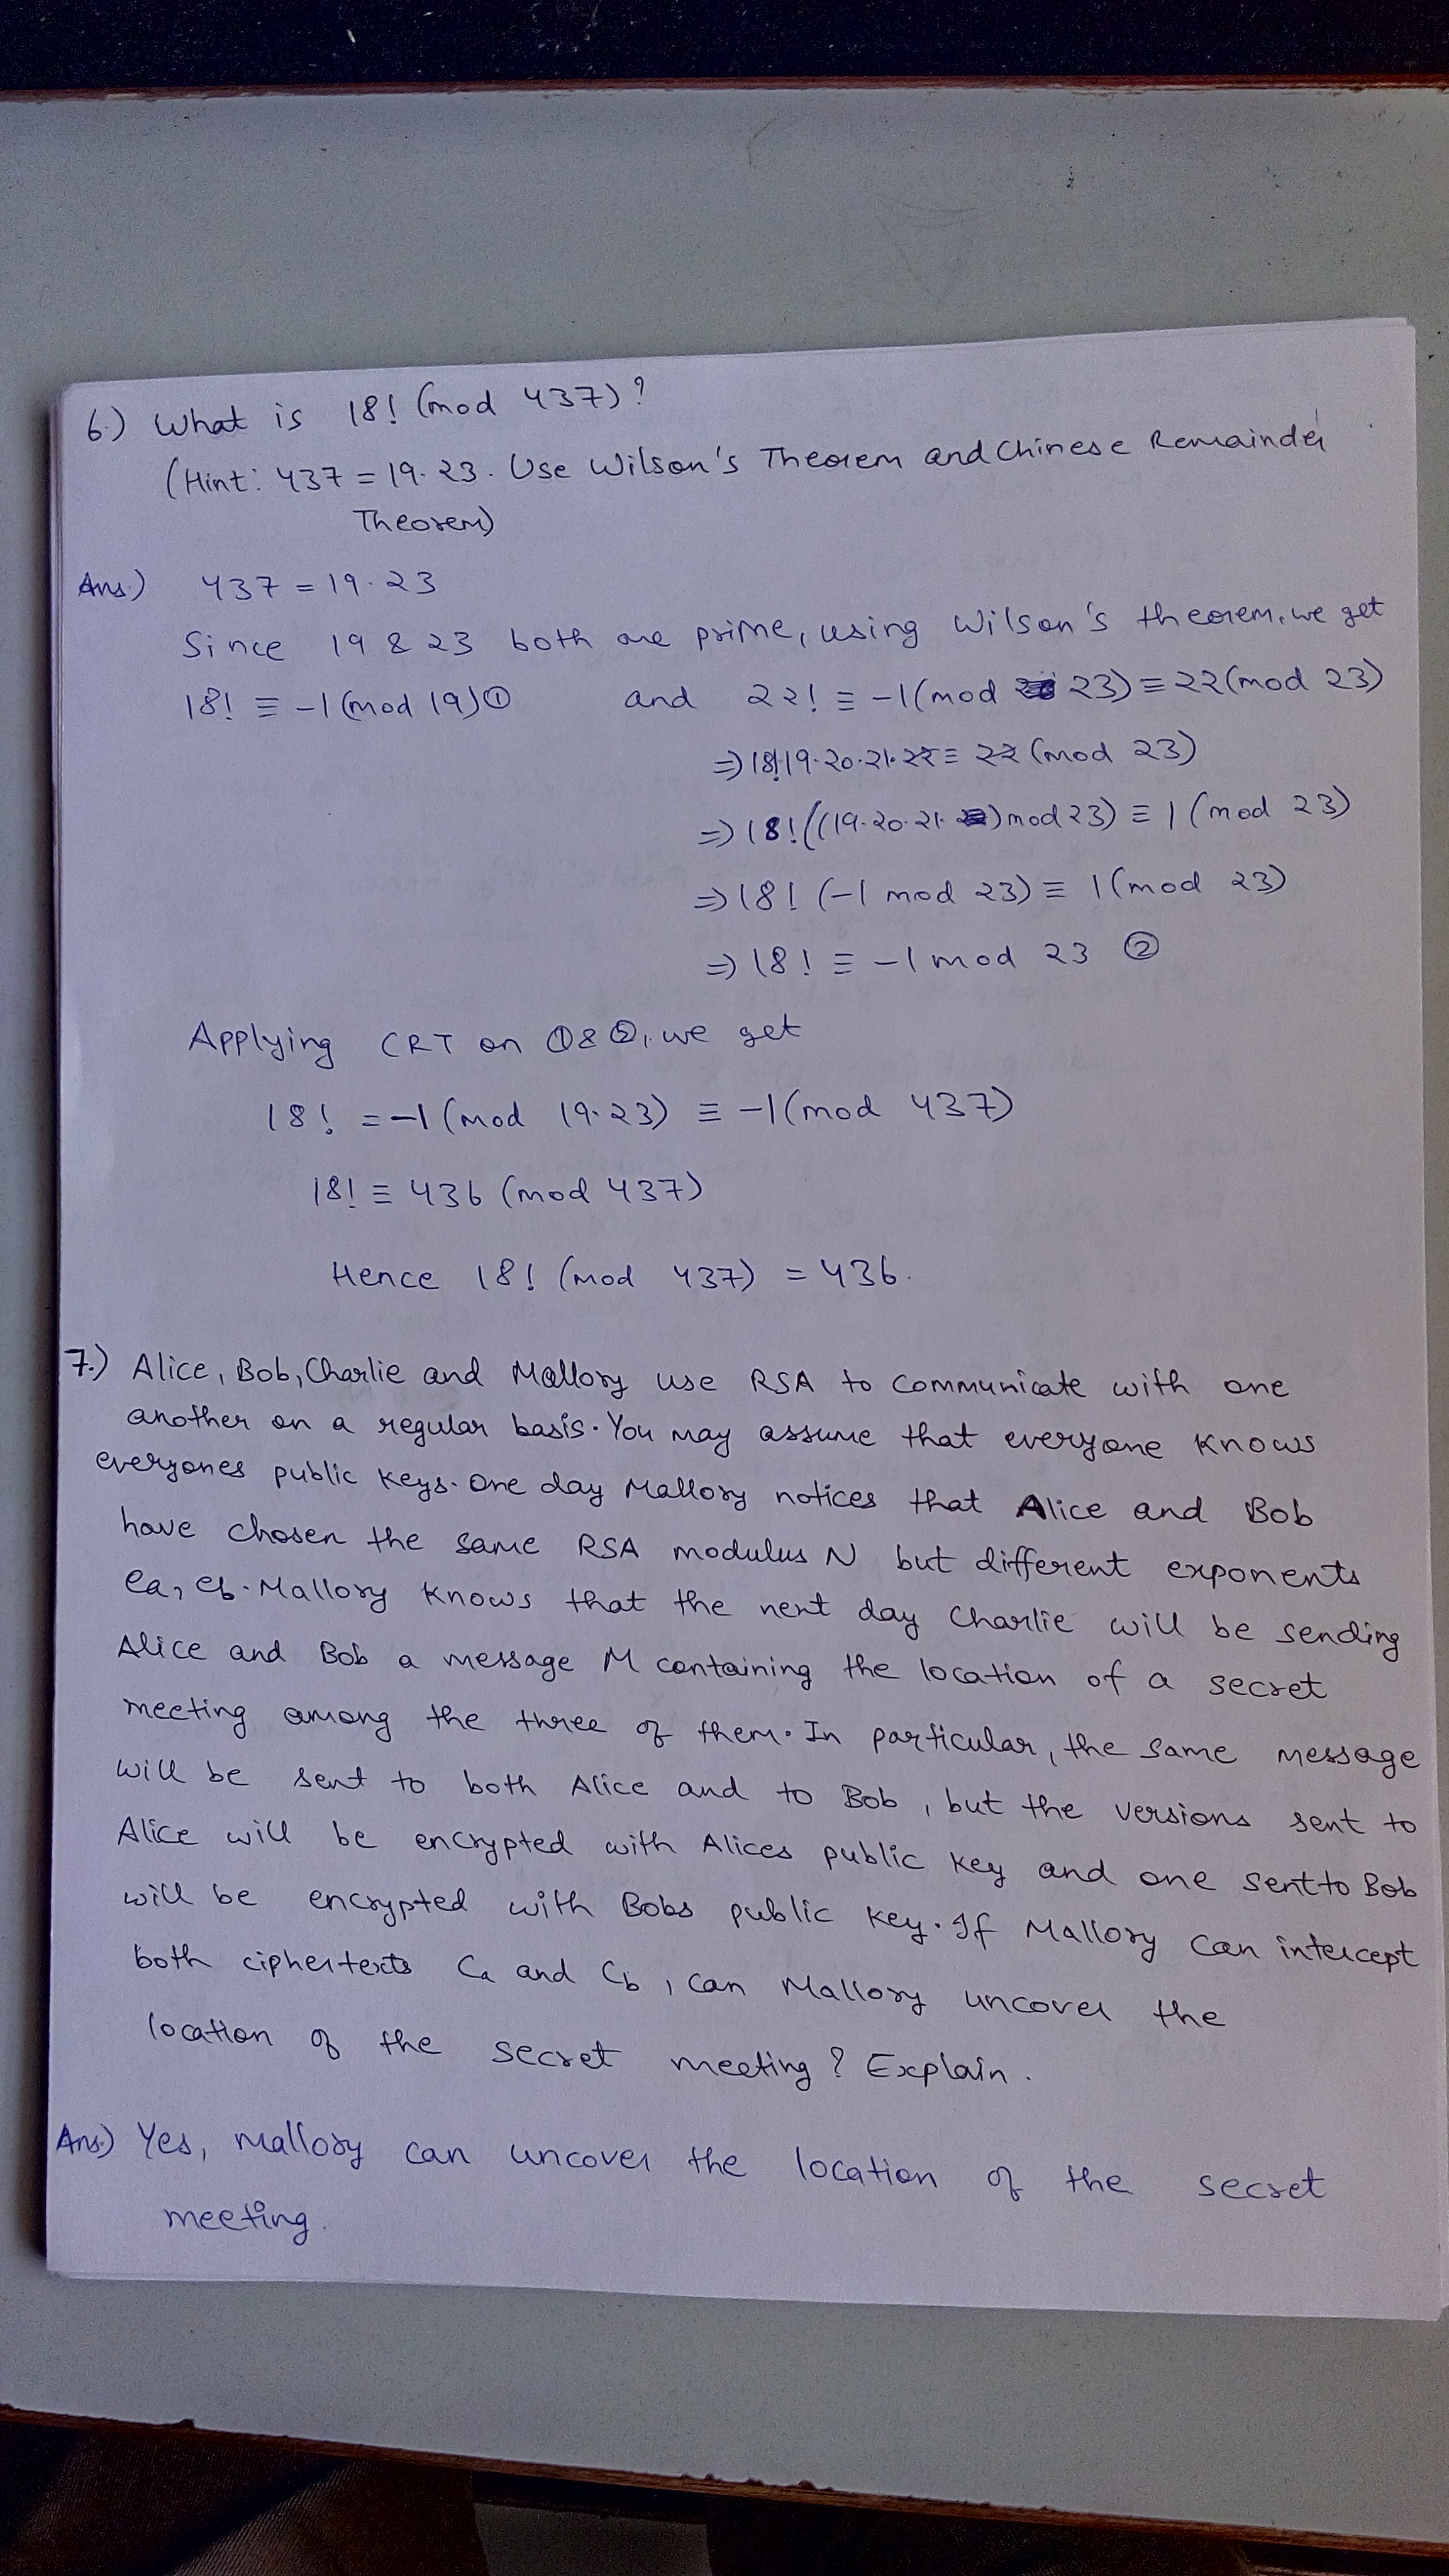 6.) What is 18! (mod 437)?
(Hint: 437 = 19·23. Use Wilson's Theorem and Chinese Remainder
Theorem)
Ans.) 437 = 19·23
Since 19 & 23 both are prime, using Wilson's theorem, we get
18! ≡ -1 (mod 19) ① and 22! ≡ -1 (mod 23) ≡ 22 (mod 23)
⇒ 18!·19·20·21·22 ≡ 22 (mod 23)
⇒ 18! ((19·20·21) mod 23) ≡ 1 (mod 23)
⇒ 18! (-1 mod 23) ≡ 1 (mod 23)
⇒ 18! ≡ -1 mod 23 ②
Applying CRT on ① & ②, we get
18! = -1 (mod 19·23) ≡ -1 (mod 437)
18! ≡ 436 (mod 437)
Hence 18! (mod 437) = 436.
7.) Alice, Bob, Charlie and Mallory use RSA to communicate with one
another on a regular basis. You may assume that everyone knows
everyones public keys. One day Mallory notices that Alice and Bob
have chosen the same RSA modulus N but different exponents
ea, eb. Mallory knows that the next day Charlie will be sending
Alice and Bob a message M containing the location of a secret
meeting among the three of them. In particular, the same message
will be sent to both Alice and to Bob, but the versions sent to
Alice will be encrypted with Alices public key and one sent to Bob
will be encrypted with Bobs public key. If Mallory can intercept
both ciphertexts Ca and Cb, can Mallory uncover the
location of the secret meeting? Explain.
Ans.) Yes, Mallory can uncover the location of the secret
meeting.